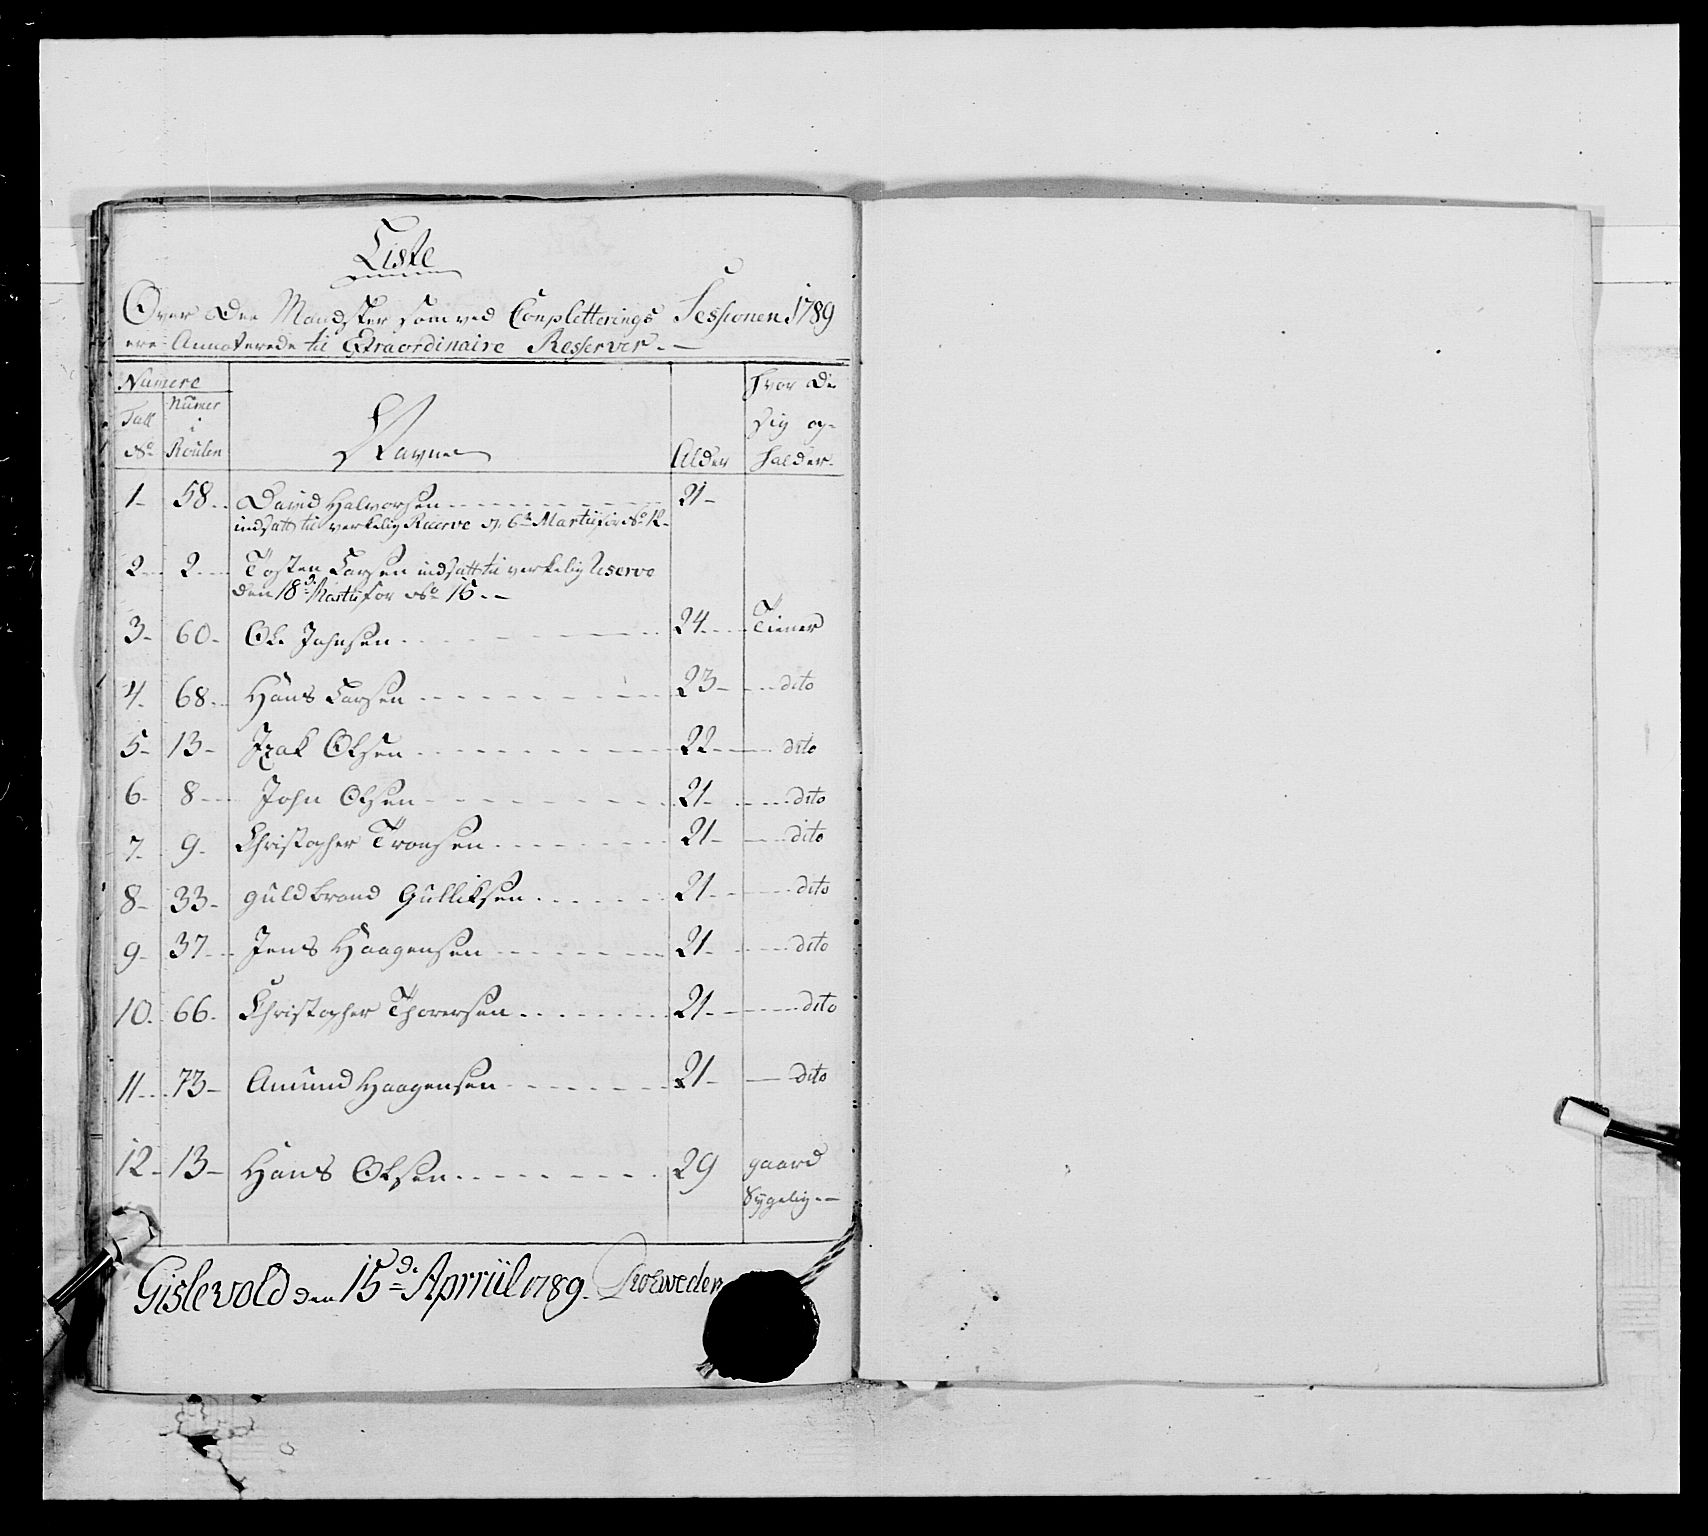 Liste
Over Den Mandskor som ved Conpletterings Sessionen 1789
ere Annoterede til Extraordinaire Resserver. —
Numere
Tall No
Numer i Roulen
Navne
Alder
Hvor De sig op- halder.
1 58 David Halvorsen 21
indsatt til verkelig Reserve d. 6te Martii for No 12
2 2 Tosten Larsen indsatt til verkelig Reserve
den 18de Martii for No 15. —
3 60 Ole Johnsen 24 Tiener
4 68 Hans Larsen 23 dito
5 13 Izak Olsen 22 dito
6 8 John Olsen 21 dito
7 9 Christopher Tronsen 21 dito
8 33 Guldbrand Gulliksen 21 dito
9 37 Jens Haagensen 21 dito
10 66 Christopher Thorersen 21 dito
11 73 Amund Haagensen 21 dito
12 13 Hans Olsen 29 gaard
Sygelig. —
Gislevold den 15de Apriil 1789.